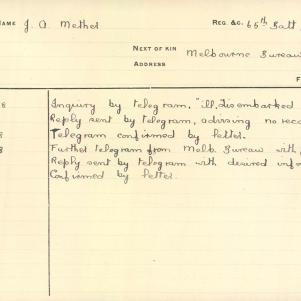 NAME J. A. Mether REG. &C. 65th Batt
NEXT OF KIN Melbourne Bureau
ADDRESS
F
8 Inquiry by telegram, "ill, disembarked
Reply sent by telegram, advising no reco
8 Telegram confirmed by letter.
8 Further telegram from Melb. Bureau with
Reply sent by telegram with desired info
Confirmed by letter.